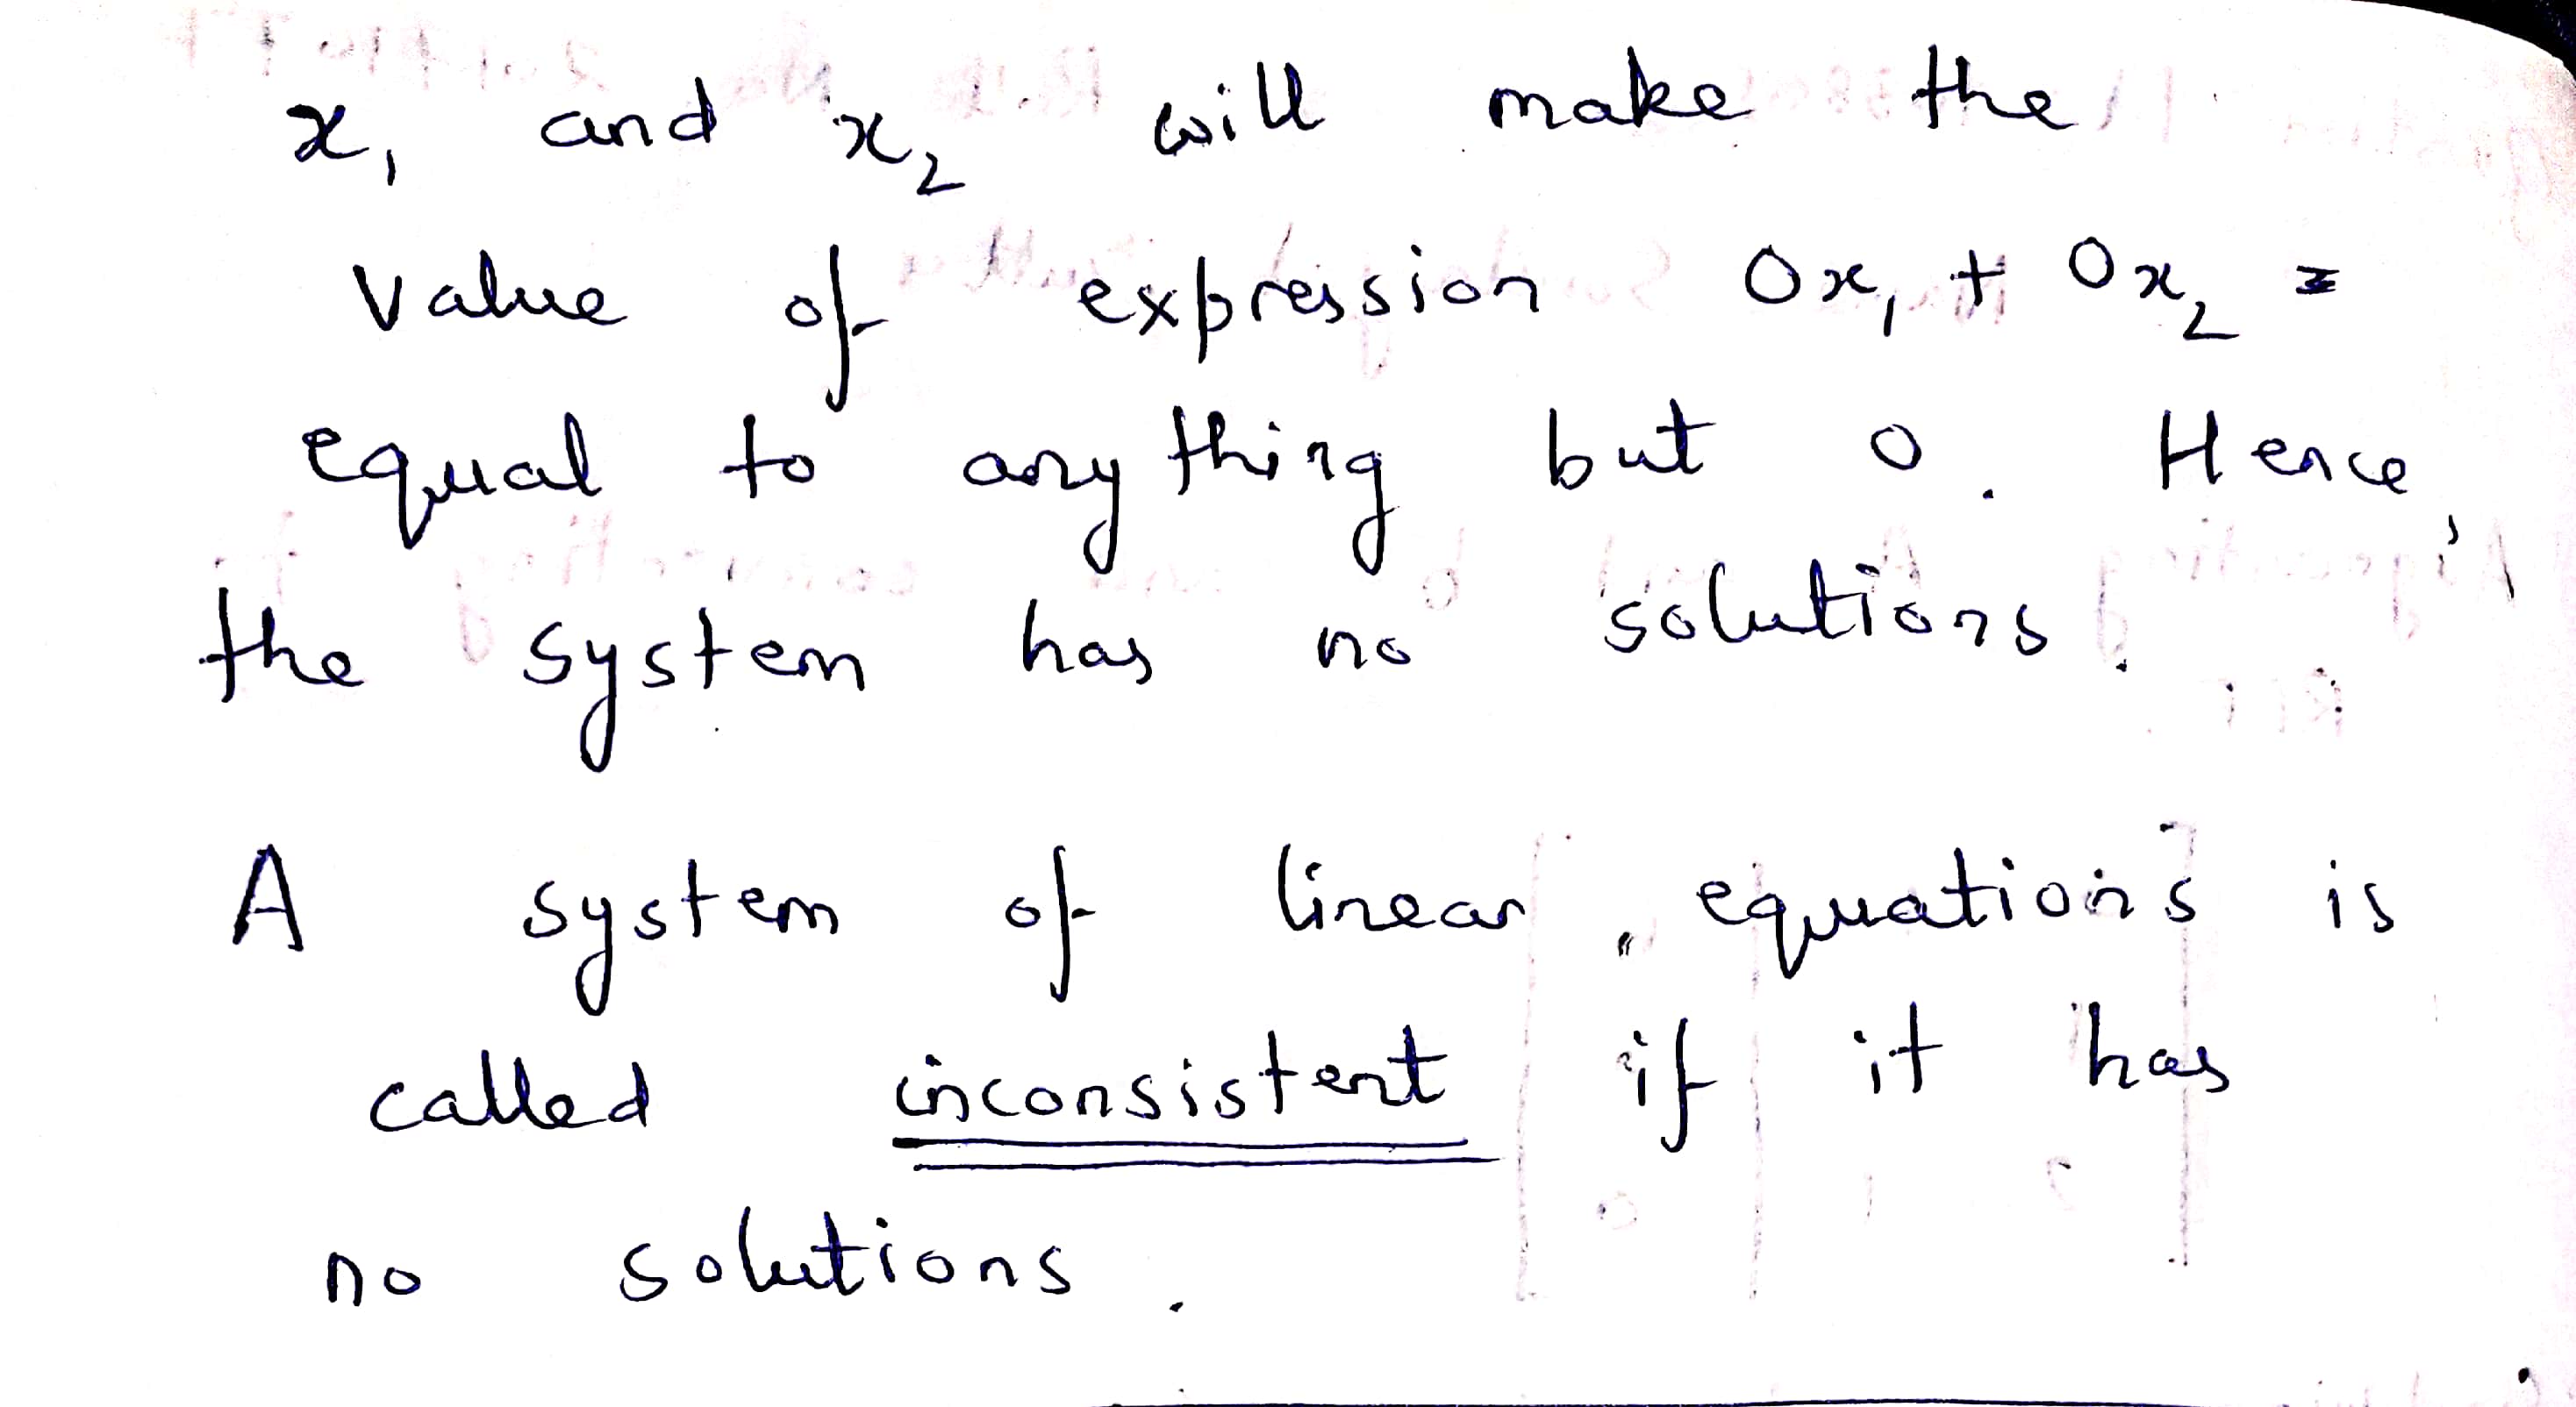 x₁ and x₂ will make the
value of expression 0x₁ + 0x₂ =
equal to anything but 0. Hence,
the system has no solutions.
A system of linear equations is
called inconsistent if it has
no solutions.